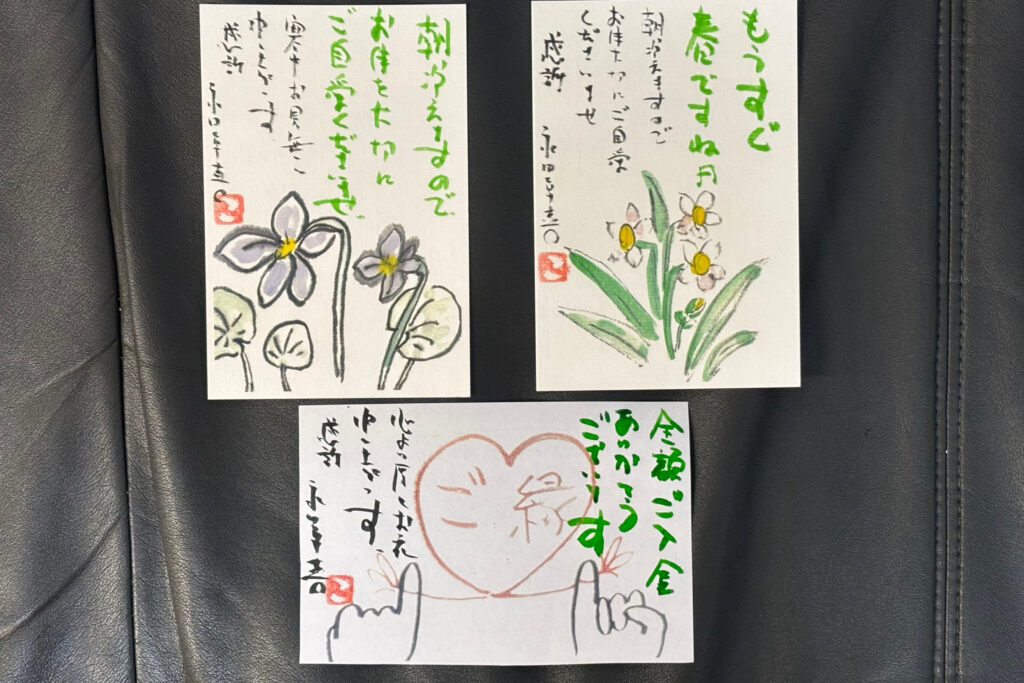 朝冷えますので
お体を大切に
ご自愛くださいませ
寒中お見舞い
申し上げます
感謝
もうすぐ
春ですね
朝冷えますので
お体大切にご自愛
くださいませ
感謝
全額ご入金
ありがとう
ございます
ご縁
心より厚くお礼
申し上げます
感謝